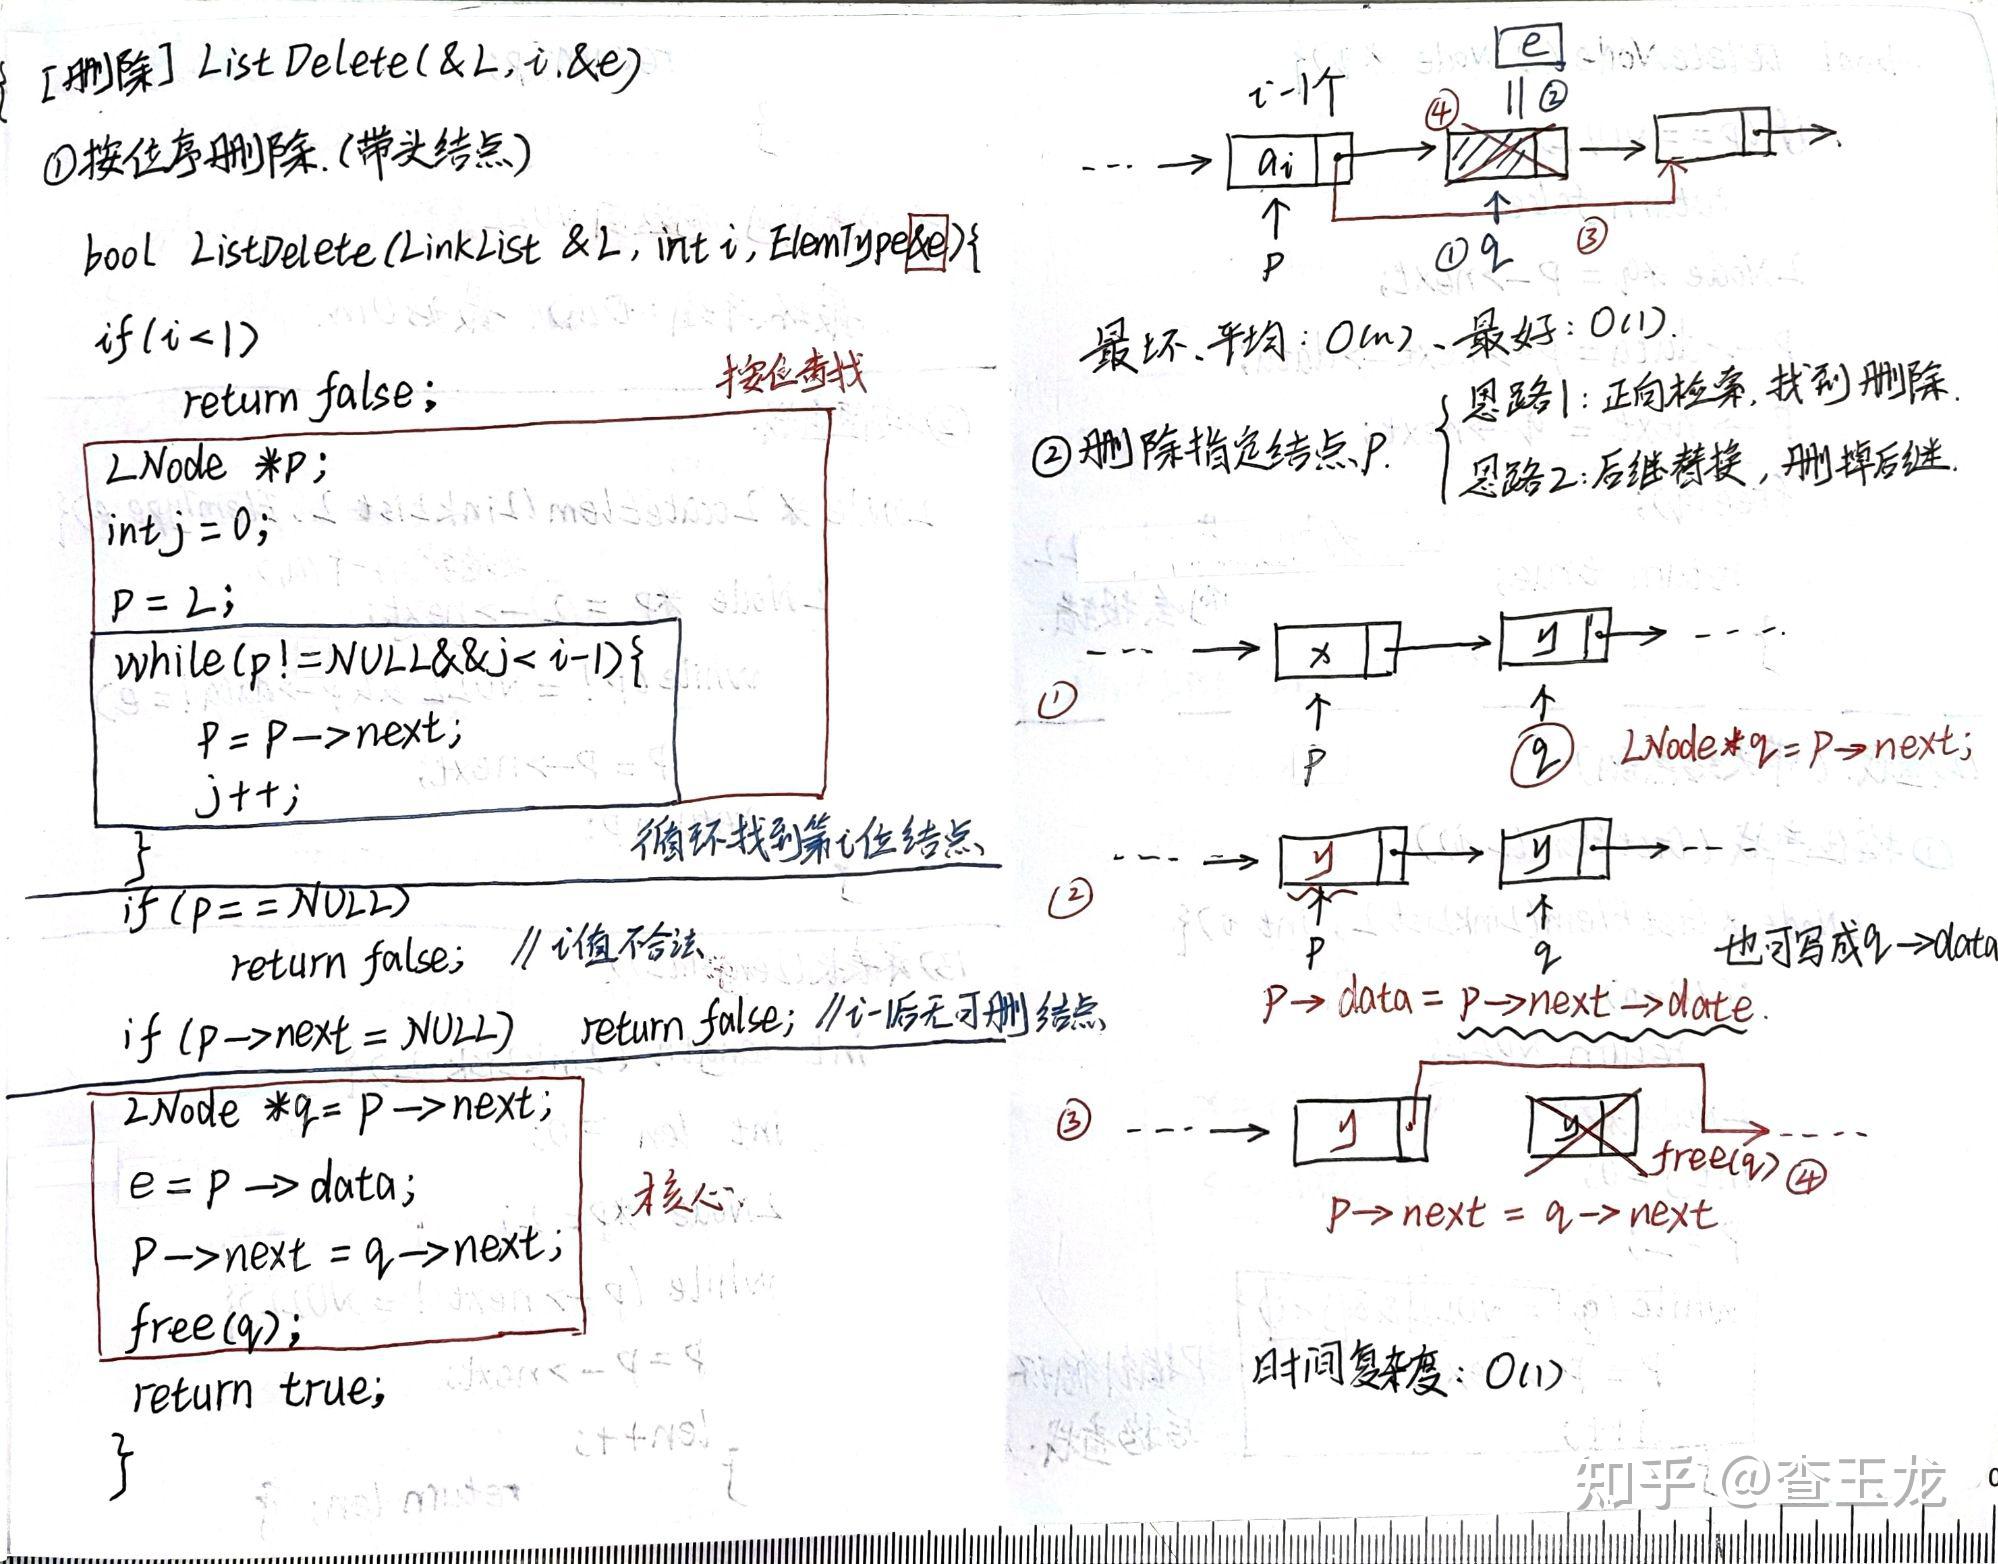 [删除] ListDelete(&L, i, &e)
①按位序删除.(带头结点)
bool ListDelete(LinkList &L, int i, ElemType&e){
if(i<1)
return false;
按位查找
LNode *p;
int j=0;
p=L;
while(p!=NULL&&j<i-1){
p=p->next;
j++;
}
循环找到第i位结点
if(p==NULL)
return false; //i值不合法
if(p->next=NULL) return false; //i-1后无可删结点
LNode *q=p->next;
e=p->data;
p->next=q->next;
free(q);
核心
return true;
}
e
i-1个
④
||②
ai
p
①q
③
最坏、平均:O(n)、最好:O(1).
②删除指定结点p.
思路1:正向检索,找到删除.
思路2:后继替换,删掉后继.
①
x
y
p
q
LNode*q=p->next;
②
y
y
p
q
也可写成q->data
p->data=p->next->date.
③
y
y
free(q)④
p->next=q->next
时间复杂度:O(1)
知乎 @查玉龙
0